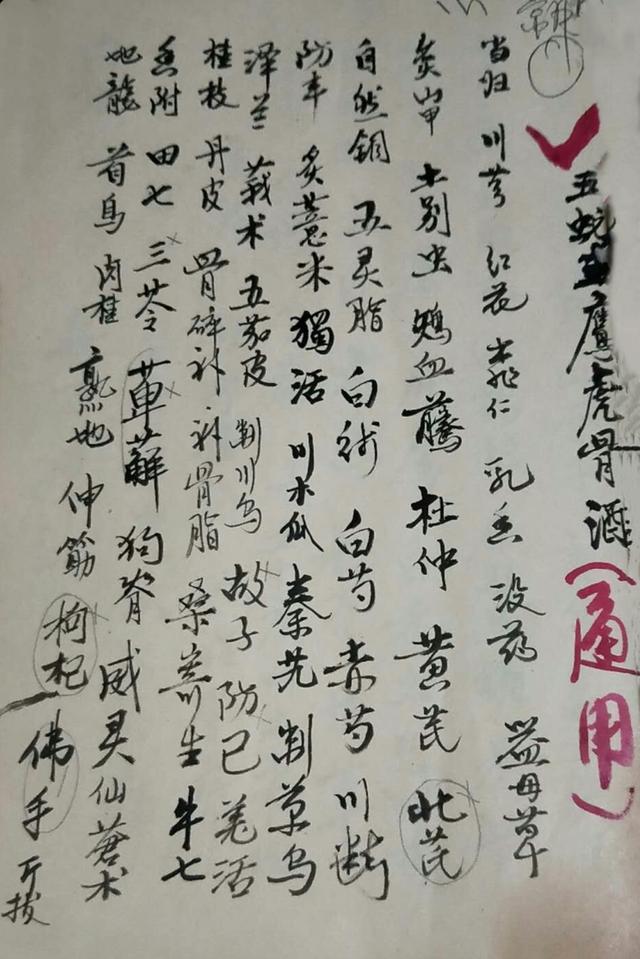 五蛇鹰虎骨酒(通用)
当归 川芎 红花 桃仁 乳香 没药 益母草
炙山甲 土别虫 鸡血藤 杜仲 黄芪 北芪
自然铜 五灵脂 白術 白芍 赤芍 川断
防丰 炙薏米 獨活 川木瓜 秦艽 制草乌
泽兰 莪术 五茄皮 制川乌 故子 防已 羌活
桂枝 丹皮 骨碎补 补骨脂 桑寄生 牛七
香附 田七 三苓 萆薢 狗脊 威灵仙 蒼术
地龍 首乌 肉桂 熟地 伸筋 枸杞 佛手 万拔